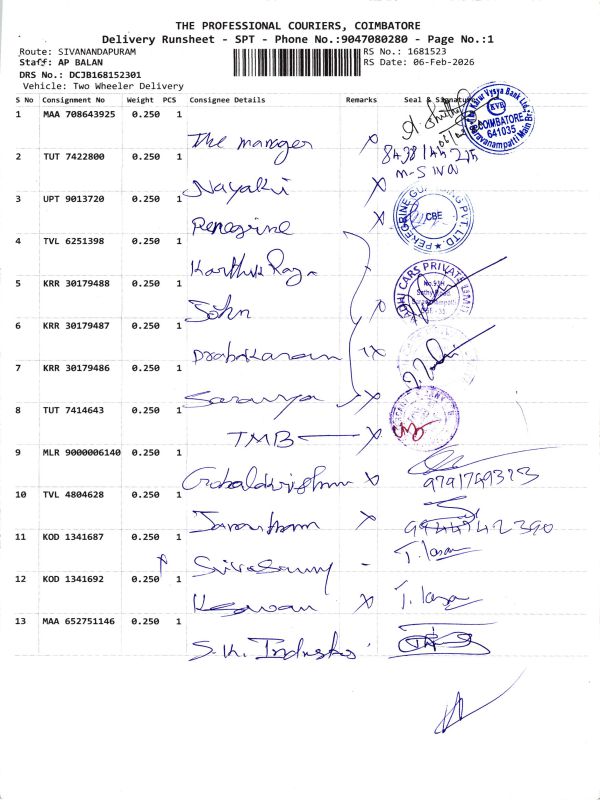 THE PROFESSIONAL COURIERS, COIMBATORE
Delivery Runsheet - SPT - Phone No.:9047080280 - Page No.:1
Route: SIVANANDAPURAM
RS No.: 1681523
Staff: AP BALAN
RS Date: 06-Feb-2026
DRS No.: DCJB168152301
Vehicle: Two Wheeler Delivery
S No Consignment No Weight PCS Consignee Details Remarks Seal & Signature
1 MAA 708643925 0.250 1 The manager X
2 TUT 7422800 0.250 1 Nayaki X
M-SIVA
3 UPT 9013720 0.250 1 Peregrine X CBE
4 TVL 6251398 0.250 1 Karthik Raja
5 KRR 30179488 0.250 1 X
6 KRR 30179487 0.250 1 Prabakaran X
7 KRR 30179486 0.250 1 Saranya X
8 TUT 7414643 0.250 1 TMB X
9 MLR 9000006140 0.250 1 Gobalakrishnan X 9791749323
10 TVL 4804628 0.250 1 X
11 KOD 1341687 0.250 1 Sivasamy -
12 KOD 1341692 0.250 1 Kesavan X
13 MAA 652751146 0.250 1 S.K. Industries
Karur Vysya Bank Ltd.
KVB
COIMBATORE
641035
CARS PRIVATE LIMITED